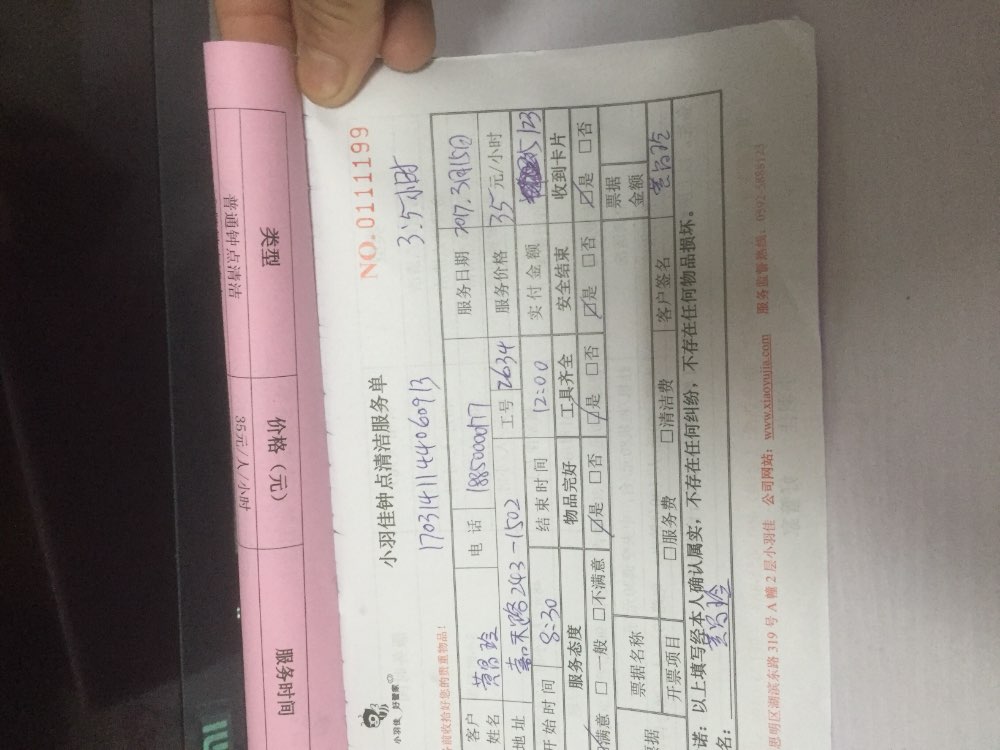 类型
价格（元）
服务时间
普通钟点清洁
35元/人/小时
小羽佳 好管家
小羽佳钟点清洁服务单
NO.0111199
17031411440609113
3.5小时
前收拾好您的贵重物品！
客户姓名 黄昌玲 电话 1885000017 服务日期 2017.3月15日
地址 嘉禾路243-1502 工号 2634 服务价格 35元/小时
开始时间 8:30 结束时间 12:00 实付金额 123
服务态度 物品完好 工具齐全 安全结束 收到卡片
满意 □一般 □不满意 ☑是 □否 ☑是 □否 ☑是 □否 ☑是 □否
票据 票据名称 票据金额
开票项目 □服务费 □清洁费 客户签名 黄昌玲
诺：以上填写经本人确认属实，不存在任何纠纷，不存在任何物品损坏。
名：黄昌玲
思明区湖滨东路319号A幢2层小羽佳 公司网站：www.xiaoyujia.com 服务监督热线：0592-5888123